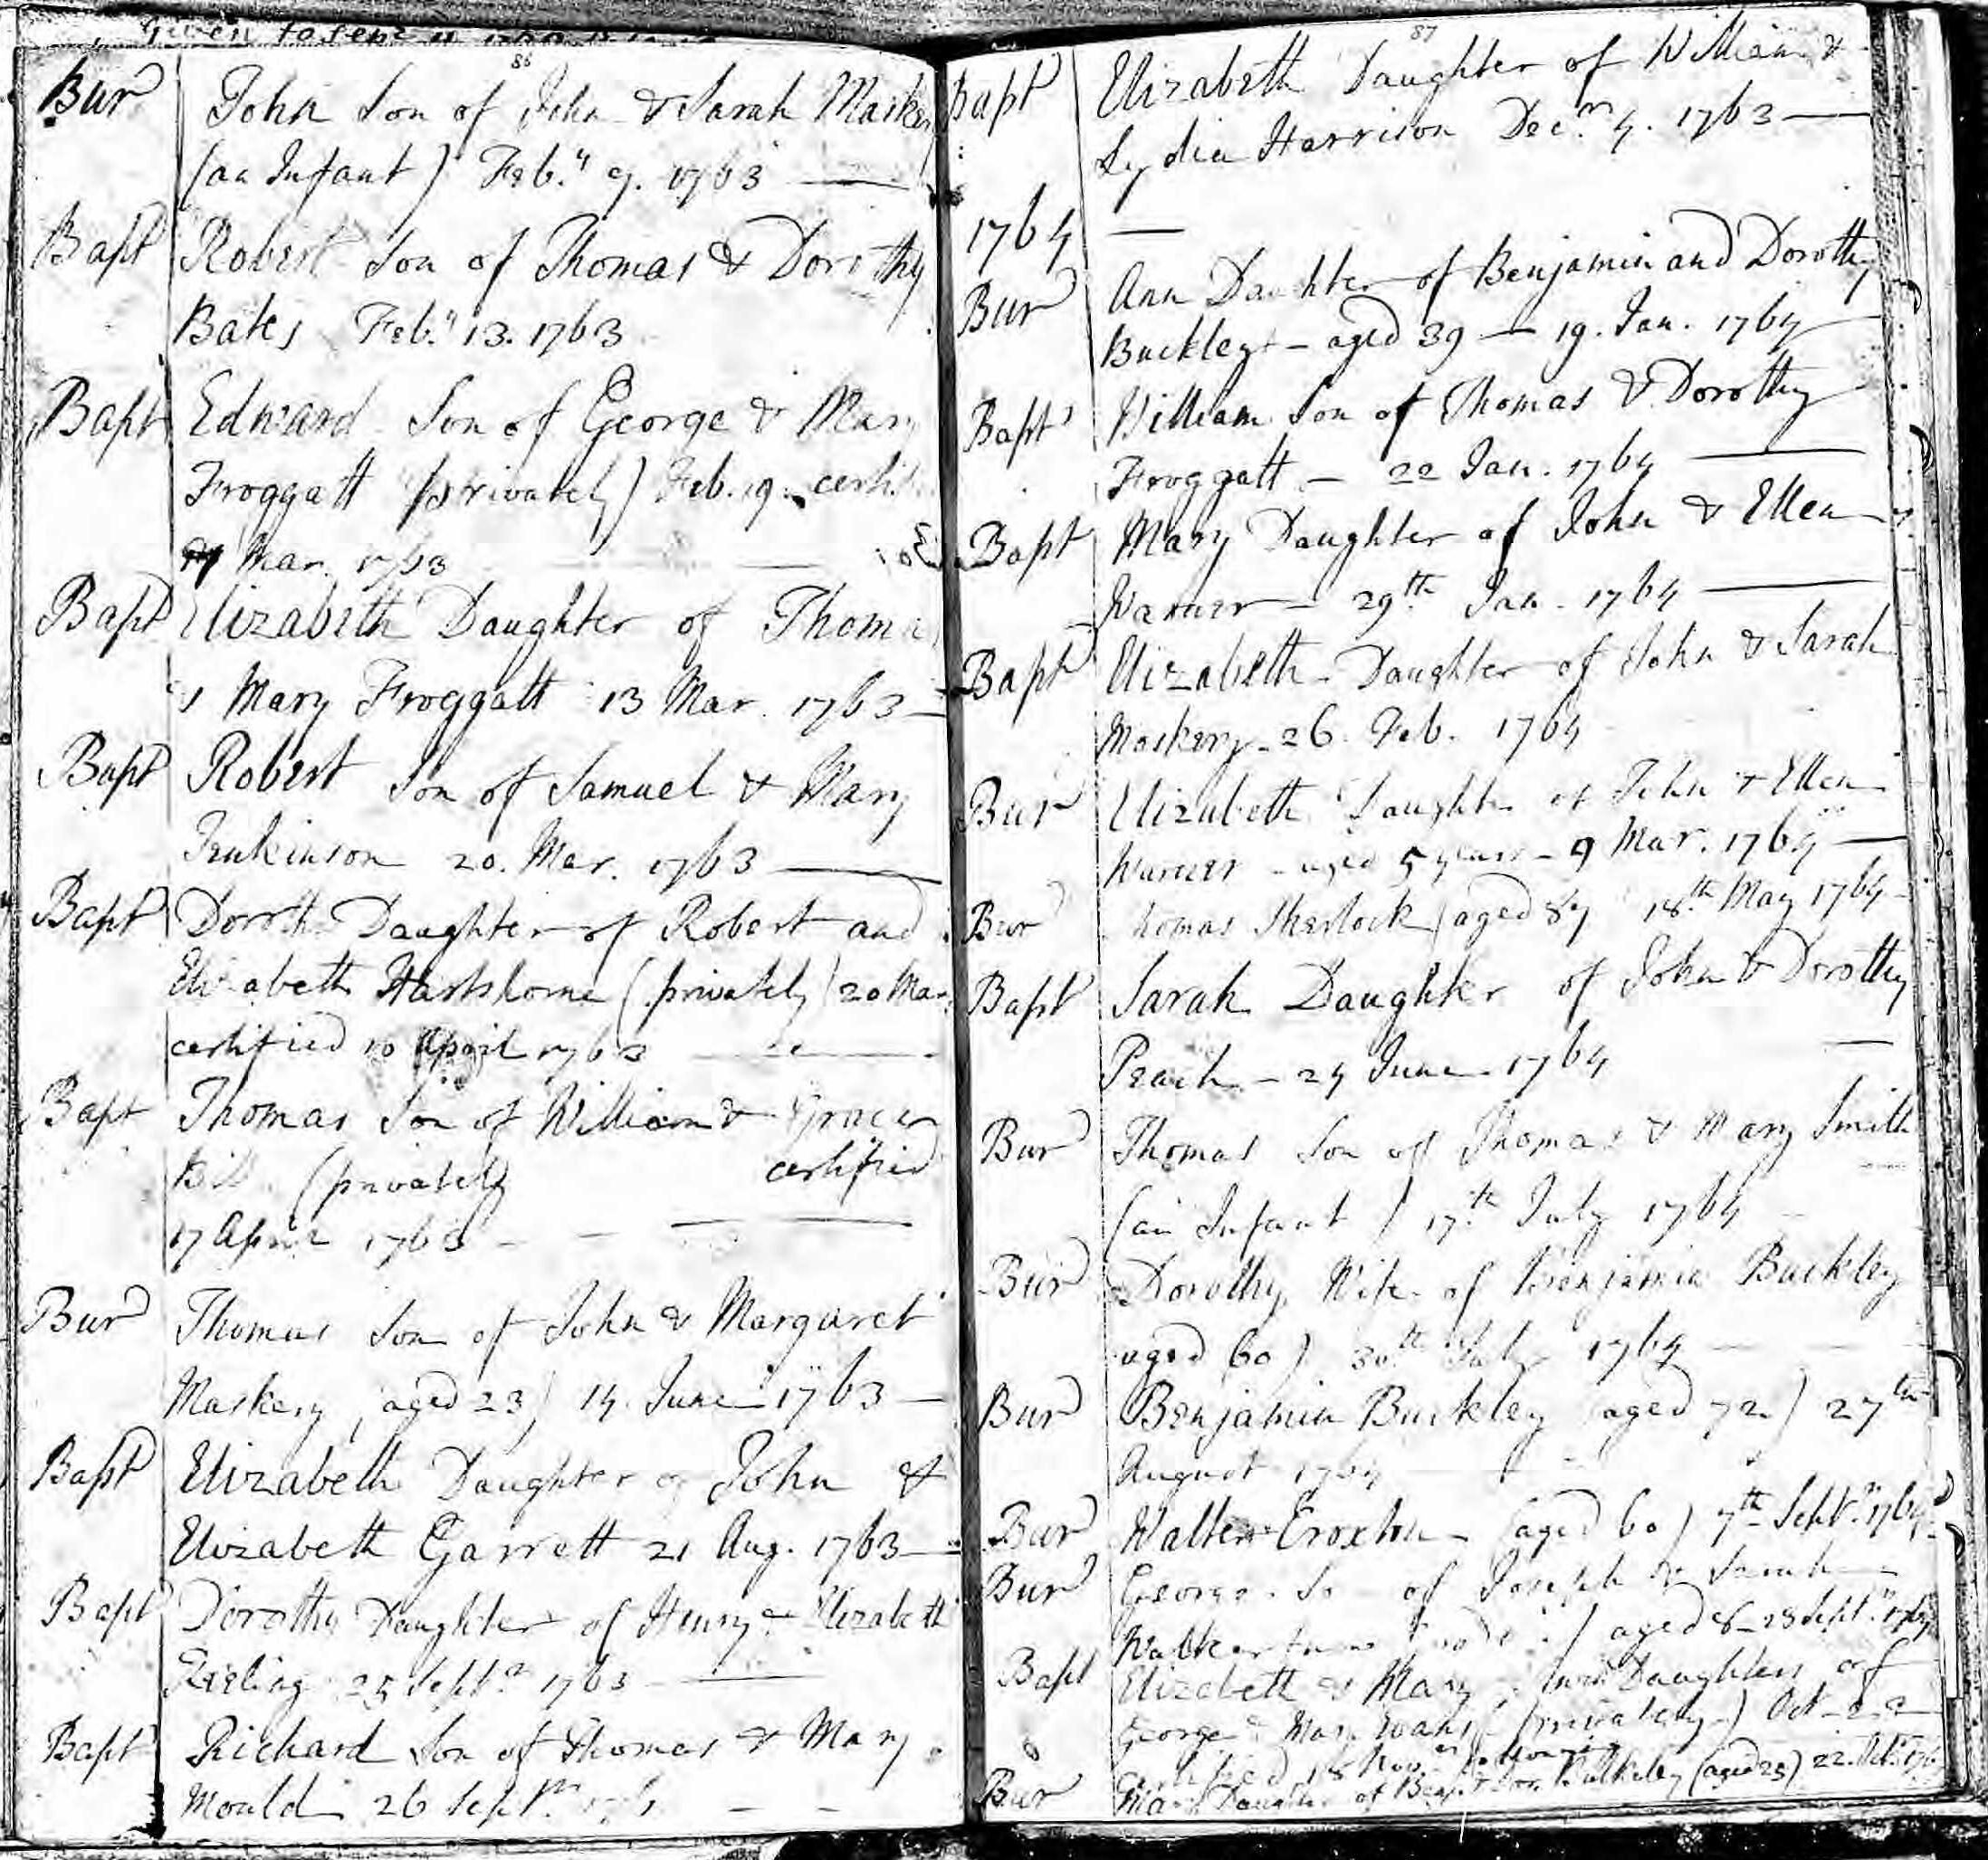 86
Bur^d John Son of John & Sarah Maskery
(an Infant) Feb.^y 9. 1763 —
Bapt^d Robert Son of Thomas & Dorothy
Bates Feb.^y 13. 1763
Bapt^d Edward Son of George & Mary
Froggatt (privately) Feb. 19.
Mar. 1763
Bapt^d Elizabeth Daughter of Thomas
& Mary Froggatt 13 Mar. 1763 —
Bapt^d Robert Son of Samuel & Mary
Jenkinson 20. Mar. 1763 —
Bapt^d Daughter of Robert and
Elizabeth Hartshorne (privately) 20 Mar.
certified 10 April 1763 —
Bapt Thomas Son of William & Grace
(privately certified
17 April 1763 —
Bur^d Thomas Son of John & Margaret
Maskery (aged 23) 14 June 1763 —
Bapt^d Elizabeth Daughter of John &
Elizabeth Garrett 21 Aug. 1763 —
Bapt^d Dorothy Daughter of Henry & Elizabeth
25 Sept.^r 1763 —
Bapt^d Richard Son of Thomas & Mary
Mould 26 Sept.^r
87
Bapt^d Elizabeth Daughter of William &
Lydia Harrison Dec.^r 4. 1763 —
1764 —
Bur^d Ann Daughter of Benjamin and Dorothy
Buckley — aged 39 — 19. Jan. 1764
Bapt^d William Son of Thomas & Dorothy
Froggatt — 22 Jan. 1764 —
Bapt^d Mary Daughter of John & Ellen
Warner — 29th Jan. 1764 —
Bapt^d Elizabeth Daughter of John & Sarah
Maskery — 26. Feb. 1764
Bur^d Elizabeth Daughter of John & Ellen
Warner — aged 5 years — 9 Mar. 1764 —
Bur^d Thomas Sherlock (aged 84 18th May 1764
Bapt^d Sarah Daughter of John & Dorothy
Peach — 24 June 1764 —
Bur^d Thomas Son of Thomas & Mary Smith
(an Infant) 17th July 1764
Bur^d Dorothy Wife of Benjamin Buckley
aged 60) 30th July 1764
Bur^d Benjamin Buckley (aged 72) 27th
August 1764
Bur^d Walter Croxton (aged 60) 7th Sept.^r 1764
Bur^d George Son of Joseph & Sarah
aged 8 — 23 Sept.^r 1764
Bapt^d Elizabeth & Mary twin Daughters of
George & Mary Evans (privately) Oct. 22
certified 18 Nov.^r following
Bur^d Mary Daughter of Benj.^n & Dor. Bulkeley (aged 25) 22. Oct.^r